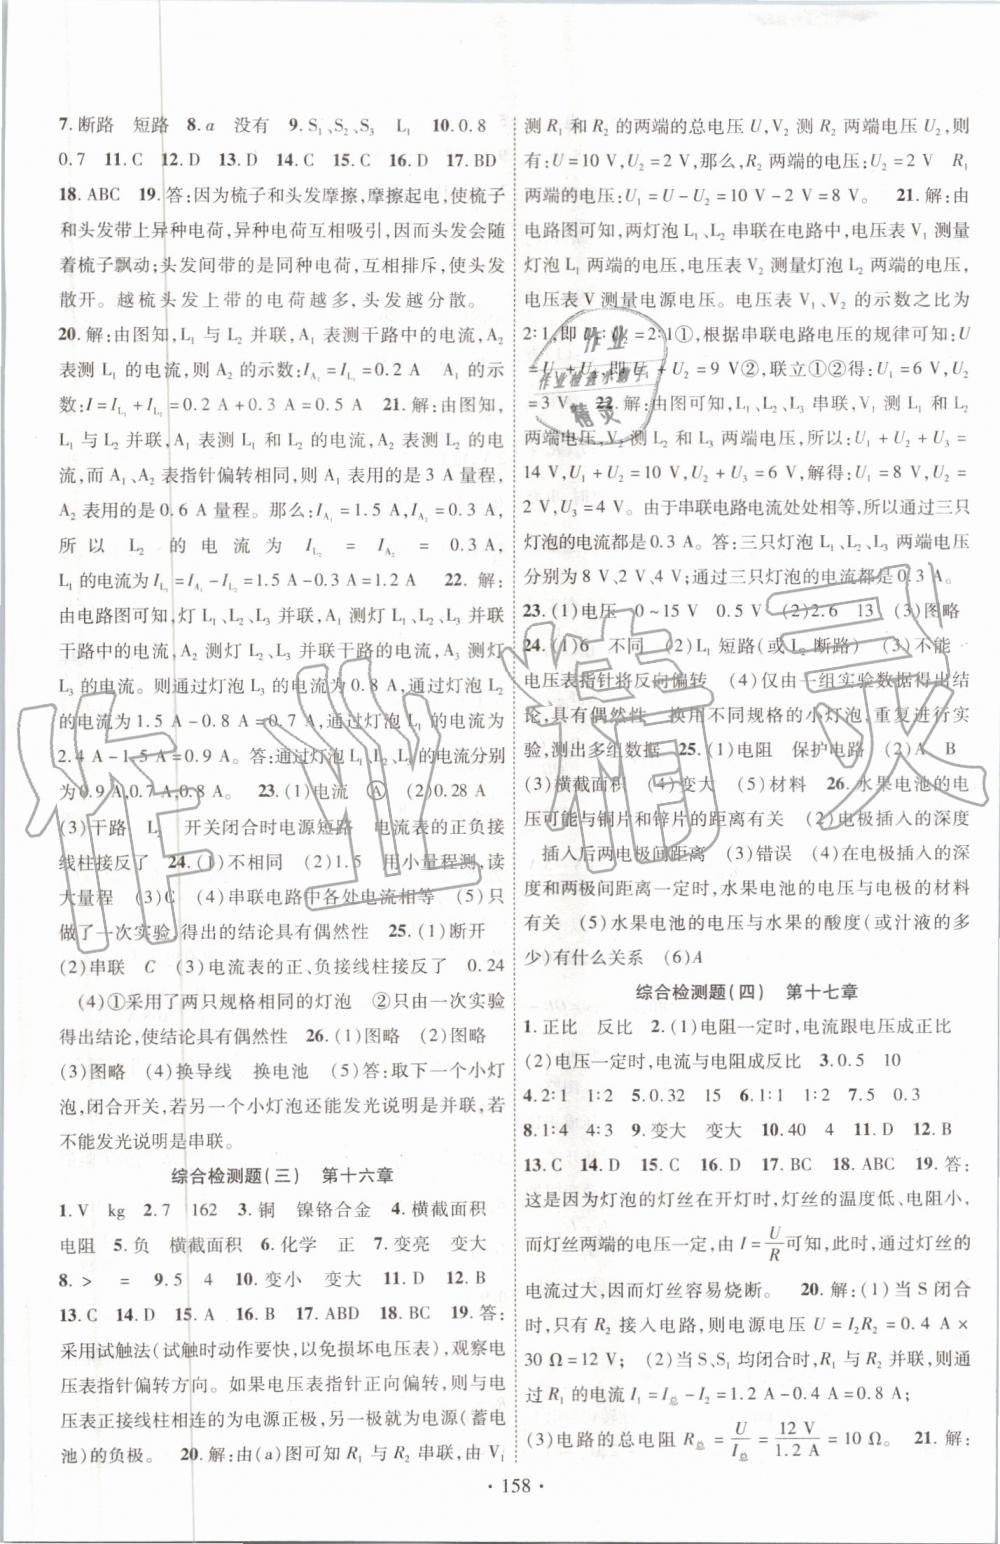 7.断路　短路　8.a　没有　9.S₁、S₂、S₃　L₁　10.0.8
0.7　11.C　12.D　13.D　14.C　15.A　16.D　17.BD
18.ABC　19.答:因为梳子和头发摩擦,摩擦起电,使梳子
和头发带上异种电荷,异种电荷相互吸引,因而头发会随
着梳子飘动;头发间带的是同种电荷,相互排斥,使头发
散开。越梳头发上带的电荷越多,头发越分散。
20.解:由图知,L₁与L₂并联,A₁表测干路中的电流,A₂
表测L₁的电流,所以A₂的示数:I_A₂=I_L₁=0.2 A　A₁的示
数:I=I_L₁+I_L₂=0.2 A+0.3 A=0.5 A　21.解:由图知,
L₁与L₂并联,A₁表测L₁和L₂的电流,A₂表测L₂的电
流,而A₁、A₂表指针偏转相同,则A₁表用的是3 A量程,
A₂表用的是0.6 A量程。那么:I_A₁=1.5 A,I_A₂=0.3 A,
所以L₂的电流为I_L₂=I_A₂=0.3 A,
L₁的电流为I_L₁=I_A₁-I_L₂=1.5 A-0.3 A=1.2 A　22.解:
由电路图可知,灯L₁、L₂、L₃并联,A₁测灯L₁、L₂、L₃并联
干路中的电流,A₂测灯L₂、L₃并联的电流,A₃测灯
L₃的电流。则通过灯泡L₃的电流为0.8 A,通过灯泡L₂
的电流为1.5 A-0.8 A=0.7 A,通过灯泡L₁的电流为
2.4 A-1.5 A=0.9 A。答:通过灯泡L₁、L₂、L₃的电流分别
为0.9 A,0.7 A,0.8 A。　23.(1)电流　Ⓐ　(2)0.28 A
(3)干路　L₂　开关闭合时电源短路　电流表的正负接
线柱接反了　24.(1)不相同　(2)1.5　用小量程测,读
大量程　(3)C　(4)串联电路中各处电流相等　(5)只
做了一次实验,得出的结论具有偶然性　25.(1)断开
(2)串联　C　(3)电流表的正、负接线柱接反了　0.24
(4)①采用了两只规格相同的灯泡　②只由一次实验
得出结论,使结论具有偶然性　26.(1)图略　(2)图略
(3)图略　(4)换导线　换电池　(5)答:取下一个小灯
泡,闭合开关,若另一个小灯泡还能发光说明是并联,若
不能发光说明是串联。
综合检测题(三)　第十六章
1.V　kg　2.7　162　3.铜　镍铬合金　4.横截面积
电阻　5.负　横截面积　6.化学　正　7.变亮　变大
8.>　=　9.5　4　10.变小　变大　11.D　12.B
13.C　14.D　15.A　16.B　17.ABD　18.BC　19.答:
采用试触法(试触时动作要快,以免损坏电压表),观察电
压表指针偏转方向。如果电压表指针正向偏转,则与电
压表正接线柱相连的为电源正极,另一极就为电源(蓄电
池)的负极。　20.解:由(a)图可知R₁与R₂串联,由V₁
测R₁和R₂的两端的总电压U,V₂测R₂两端电压U₂,则
有:U=10 V,U₂=2 V,那么,R₂两端的电压:U₂=2 V　R₁
两端的电压:U₁=U-U₂=10 V-2 V=8 V。　21.解:由
电路图可知,两灯泡L₁、L₂串联在电路中,电压表V₁测量
灯泡L₁两端的电压,电压表V₂测量灯泡L₂两端的电压,
电压表V测量电源电压。电压表V₁、V₂的示数之比为
2:1,即U₁:U₂=2:1①,根据串联电路电压的规律可知:U
=U₁+U₂,即U₁+U₂=9 V②,联立①②得:U₁=6 V,U₂
=3 V。　22.解:由图可知,L₁、L₂、L₃串联,V₁测L₁和L₂
两端电压,V₂测L₂和L₃两端电压,所以:U₁+U₂+U₃=
14 V,U₁+U₂=10 V,U₂+U₃=6 V,解得:U₁=8 V,U₂=
2 V,U₃=4 V。由于串联电路电流处处相等,所以通过三只
灯泡的电流都是0.3 A。答:三只灯泡L₁、L₂、L₃两端电压
分别为8 V、2 V、4 V;通过三只灯泡的电流都是0.3 A。
23.(1)电压　0~15 V　0.5 V　(2)2.6　13　(3)图略
24.(1)6　不同　(2)L₁短路(或L₂断路)　(3)不能
电压表指针将反向偏转　(4)仅由一组实验数据得出结
论,具有偶然性　换用不同规格的小灯泡,重复进行实
验,测出多组数据　25.(1)电阻　保护电路　(2)A　B
(3)横截面积　(4)变大　(5)材料　26.水果电池的电
压可能与铜片和锌片的距离有关　(2)电极插入的深度
插入后两电极间距离　(3)错误　(4)在电极插入的深
度和两极间距离一定时,水果电池的电压与电极的材料
有关　(5)水果电池的电压与水果的酸度(或汁液的多
少)有什么关系　(6)A
综合检测题(四)　第十七章
1.正比　反比　2.(1)电阻一定时,电流跟电压成正比
(2)电压一定时,电流与电阻成反比　3.0.5　10
4.2:1　1:2　5.0.32　15　6.1:1　1:2　7.5　0.3
8.1:4　4:3　9.变大　变大　10.40　4　11.D　12.B
13.C　14.D　15.D　16.B　17.AC　18.AC　19.答:
这是因为灯泡的灯丝在开灯时,灯丝的温度低、电阻小,
而灯丝两端的电压一定,由I=U/R可知,此时,通过灯丝的
电流过大,因而灯丝容易烧断。　20.解:(1)当S闭合
时,只有R₂接入电路,则电源电压U=I₂R₂=0.4 A×
30 Ω=12 V;　(2)当S、S₁均闭合时,R₁与R₂并联,则通
过R₁的电流I₁=I总-I₂=1.2 A-0.4 A=0.8 A;
(3)电路的总电阻R总=U/I总=12 V/1.2 A=10 Ω。　21.解:
·158·
作业精灵
作业
作业检查小助手
精灵